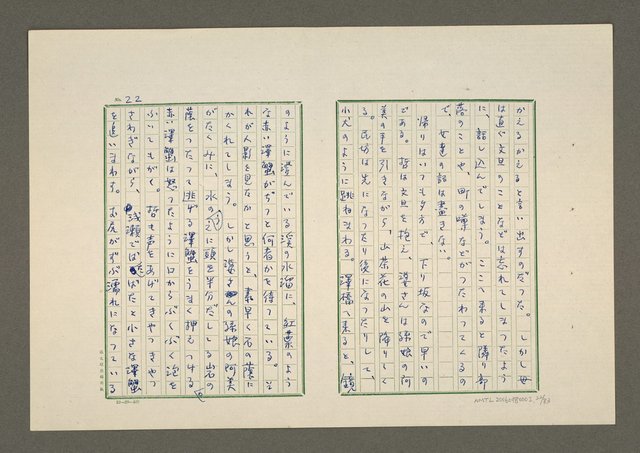 かえるかえると言い出すのだった。しかし母
は直ぐ文旦のことなどは忘れてしまったよう
に、話し込んでしまう。ここへ来ると隣り部
落のことや、町の噂などがつたわってくるの
で、女達の話は盡きない。
帰りはいつも夕方で、下り坂なので早いの
である。哲は文旦を抱え、婆さんは孫娘の阿
美の手を引きながら、山茶花の山を降りてく
る。民切は先になったり後になったりして、
小犬のように跳ねまわる。澤橋へ来ると、鏡
No. 22
のように澄んでいる渓の水溜に、紅葉のよう
な赤い澤蟹がぢっと何者かを待っている。そ
れが人影を見たかと思うと、素早く石の蔭に
かくれてしまう。しかし婆さんの孫娘の阿美
がたくみに、水の に頭を半分だしてる岩の
蔭をつたって逃げる澤蟹をうまく押えつける
赤い澤蟹は怒ったように口からぶくぶく泡を
ふいてもがく。哲も声をあげてきやっきやっ
さわぎながら、浅瀬では ばたと小さな澤蟹
を追いまわす。お尻がずぶ濡れになっている
AMTL20060980002